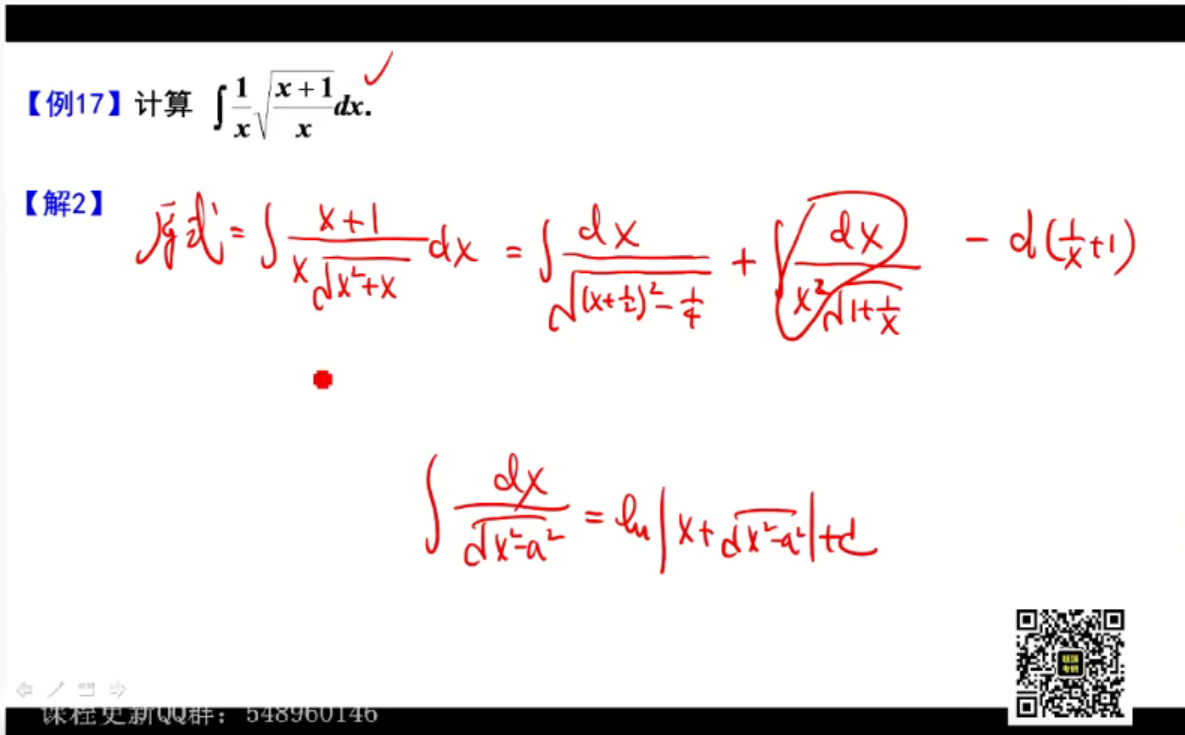 【例17】计算 ∫ 1/x √((x+1)/x) dx.
【解2】 原式 = ∫ (x+1)/(x√(x²+x)) dx = ∫ dx/√((x+1/2)²-1/4) + ∫ dx/(x²√(1+1/x)) - d(1/x+1)
∫ dx/√(x²-a²) = ln|x+√(x²-a²)|+C
课程更新QQ群：548960146